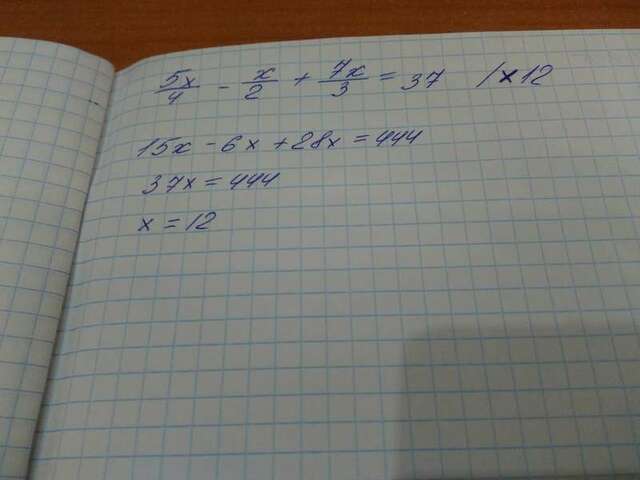 5x/4 - x/2 + 7x/3 = 37 /×12
15x - 6x + 28x = 444
37x = 444
x = 12